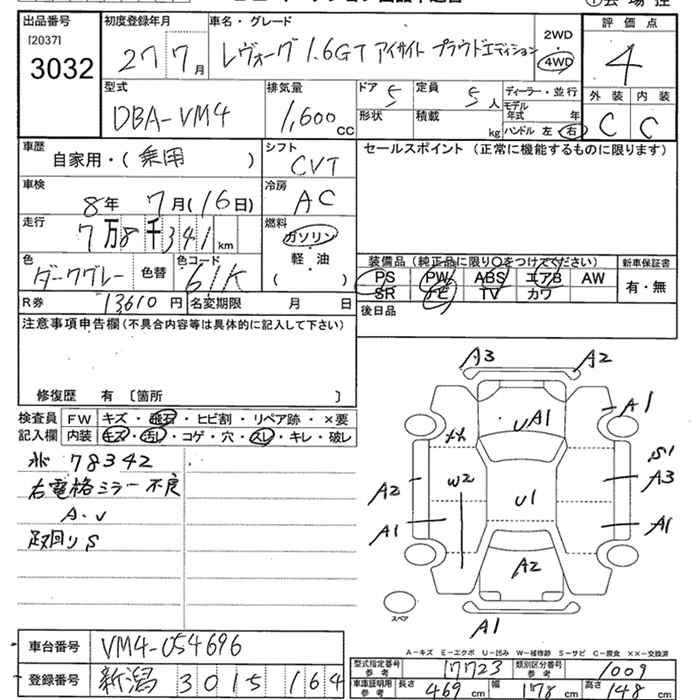 出品番号 初度登録年月 車名・グレード 評価点
[2037]
3032
27 7月 レヴォーグ 1.6GT アイサイト プラウドエディション
2WD
4WD
4
型式 排気量 ドア 定員 ディーラー・並行 外装 内装
DBA-VM4 1,600 cc 5 5人
形状 積載 kg モデル年式 年
ハンドル 左 右
C C
車歴 シフト セールスポイント(正常に機能するものに限ります)
自家用・(乗用) CVT
車検 冷房
8年 7月(16日) AC
走行 燃料
7万8千341km ガソリン
軽・油
( )
色 色替 色コード
ダークグレー 61K
装備品(純正品に限り〇をつけてください) 新車保証書
PS PW ABS エアB AW 有・無
SR ナビ TV カワ
R券 13610円 名変期限 月 日
後日品
注意事項申告欄(不具合内容等は具体的に記入して下さい)
修復歴 有 〔箇所 〕
検査員 FW キズ・飛石・ヒビ割・リペア跡・×要
記入欄 内装 キズ・汚レ・コゲ・穴・スレ・キレ・破レ
78342
右電格ミラー不良
A.U
足回りS
A3 A2
UA1 A1
W2 U1 S1
A2 A3
A1 A1
A2
スペア
A1
A-キズ E-エクボ U-凹み W-補修跡 S-サビ C-腐食 ××-交換済
車台番号 VM4-054696
登録番号 新潟 3015 164
型式指定番号 参考 17723 類別区分番号 参考 1009
車庫証明用 参考 長さ 469cm 幅 178cm 高さ 148cm